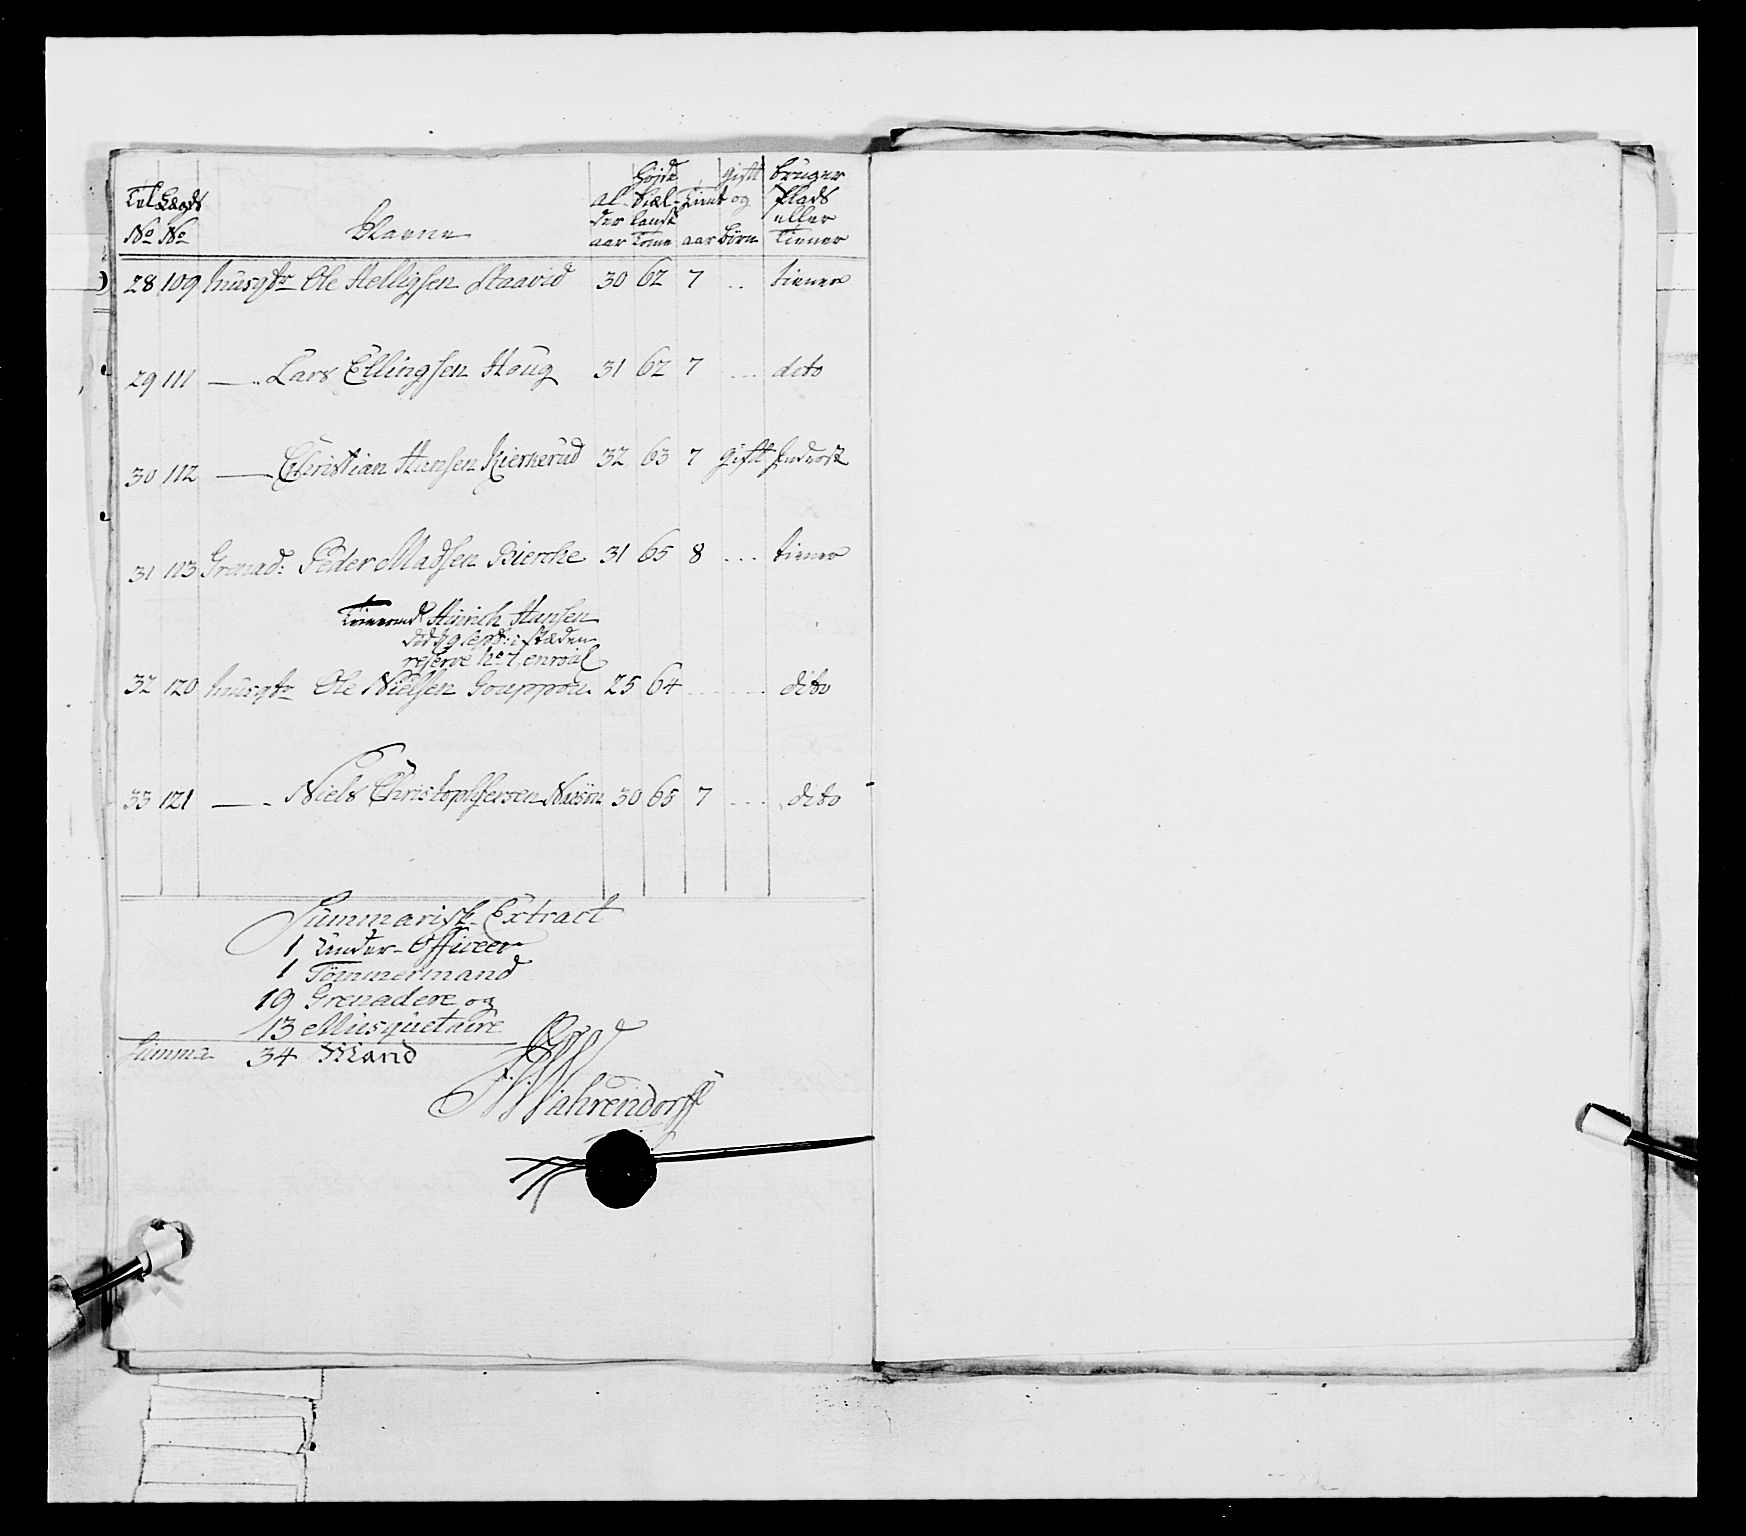 Tal No | Lægds No | Nafne | al- der aar | Højde Siæl- landsk Tome | Tient aar | gift og börn | bruger Plads eller Tiener
28 109 Musqtr Ole Helligsen Staavid 30 62 7 .. tiener
29 111 — Lars Ellingsen Haug 31 62 7 ... dito
30 112 — Christian Hansen Kierkerud 32 63 7 gift
31 113 Grenad: Peder Madsen Kierche 31 65 8 ... tiener
Hinrich Hansen
reserve No 7
32 120 Musqtr Ole Nielsen 25 64 ... dito
33 121 — Niels Christophersen 30 65 7 ... dito
Summarisk Extract
1 Under-Officeer
1 Tömmermand
19 Grenadere og
13 Musquetaire
Summa 34 Mand
Wahrendorff